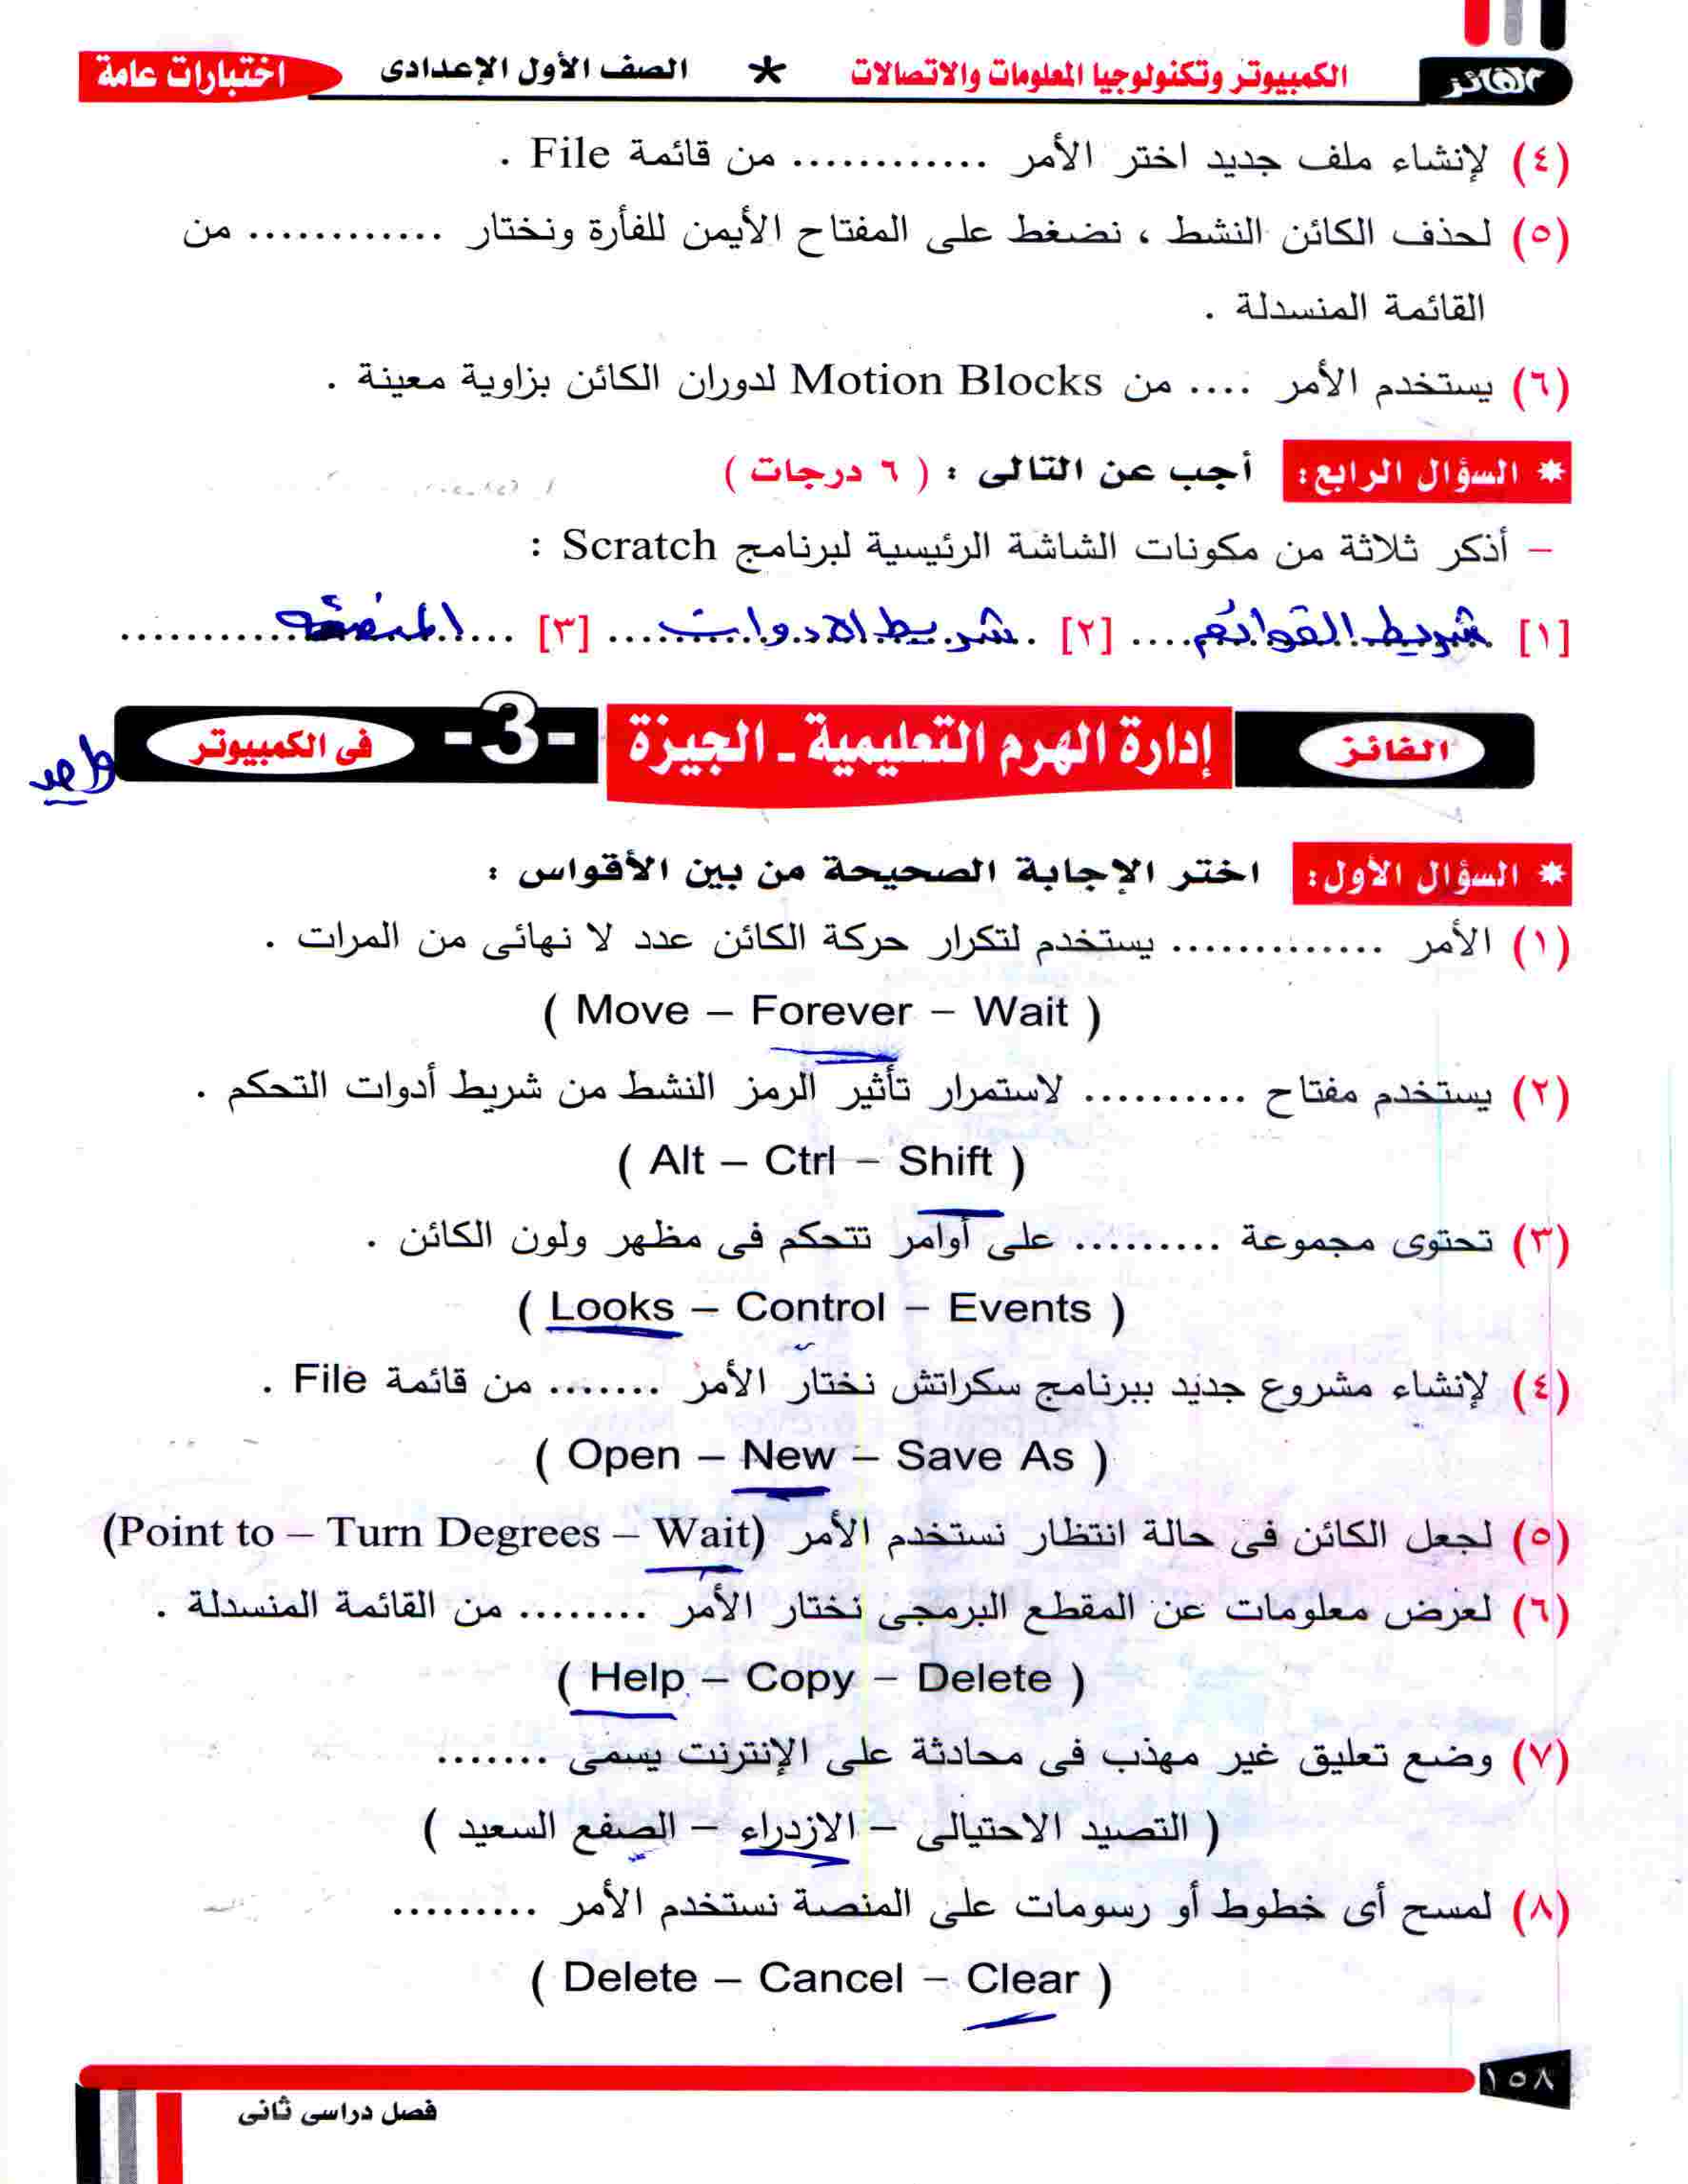 الفائز
الكمبيوتر وتكنولوجيا المعلومات والاتصالات * الصف الأول الإعدادى اختبارات عامة
(٤) لإنشاء ملف جديد اختر الأمر ............ من قائمة File .
(٥) لحذف الكائن النشط ، نضغط على المفتاح الأيمن للفأرة ونختار ............ من
القائمة المنسدلة .
(٦) يستخدم الأمر .... من Motion Blocks لدوران الكائن بزاوية معينة .
* السؤال الرابع: أجب عن التالى : ( ٦ درجات )
– أذكر ثلاثة من مكونات الشاشة الرئيسية لبرنامج Scratch :
[١] شريط القوائم [٢] شريط الادوات [٣] المنصه
الفائز إدارة الهرم التعليمية - الجيزة -3- فى الكمبيوتر
واحد
* السؤال الأول: اختر الإجابة الصحيحة من بين الأقواس :
(١) الأمر ............. يستخدم لتكرار حركة الكائن عدد لا نهائى من المرات .
( Move – Forever – Wait )
(٢) يستخدم مفتاح .......... لاستمرار تأثير الرمز النشط من شريط أدوات التحكم .
( Alt – Ctrl – Shift )
(٣) تحتوى مجموعة ......... على أوامر تتحكم فى مظهر ولون الكائن .
( Looks – Control – Events )
(٤) لإنشاء مشروع جديد ببرنامج سكراتش نختار الأمر ....... من قائمة File .
( Open – New – Save As )
(٥) لجعل الكائن فى حالة انتظار نستخدم الأمر (Point to – Turn Degrees – Wait)
(٦) لعرض معلومات عن المقطع البرمجى نختار الأمر ........ من القائمة المنسدلة .
( Help – Copy – Delete )
(٧) وضع تعليق غير مهذب فى محادثة على الإنترنت يسمى .......
( التصيد الاحتيالى – الازدراء – الصفع السعيد )
(٨) لمسح أى خطوط أو رسومات على المنصة نستخدم الأمر .........
( Delete – Cancel – Clear )
١٥٨
فصل دراسى ثانى